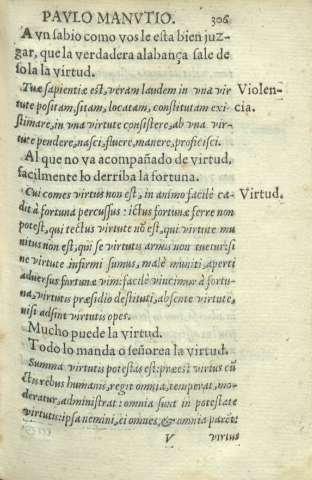 PAVLO MANVTIO. 306
A vn sabio como vos le esta bien juz-
gar, que la verdadera alabança sale de
sola la virtud.
Tuæ sapientiæ est, veram laudem in vna vir Violen-
tute positam, sitam, locatam, constitutam exi- cia.
stimare, in vna virtute consistere, ab vna vir-
tute pendere, nasci, fluere, manere, proficisci.
Al que no va acompañado de virtud,
facilmente lo derriba la fortuna.
Cui comes virtus non est, in animo facilè ca- Virtud.
dit à fortuna percussus: ictus fortunæ ferre non
potest, qui tectus virtute nō est, qui virtute mu
nitus non est, qui se virtutis armis non tuetur: si
ne virtute infirmi sumus, malè muniti, aperti
aduersus fortunæ vim: facilè vincimur à fortu-
na, virtutis præsidio destituti, absente virtute,
nisi adsint virtutis opes.
Mucho puede la virtud.
Todo lo manda o señorea la virtud.
Summa virtutis potestas est: præest virtus cū
ctis rebus humanis, regit omnia, temperat, mo-
deratur, administrat: omnia sunt in potestate
virtutis: ipsa nemini, ei omnes, & omnia parēt:
V virtus